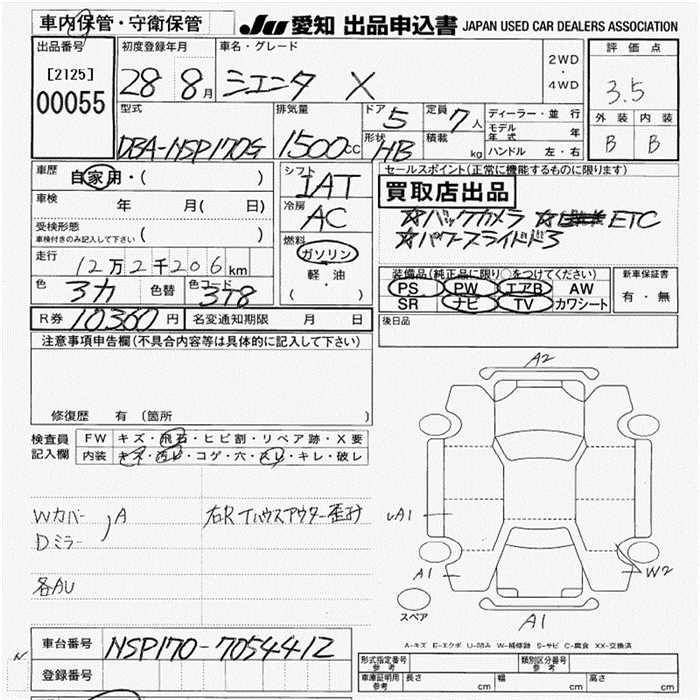 車内保管・守衛保管
JU 愛知 出品申込書 JAPAN USED CAR DEALERS ASSOCIATION
出品番号
[2125]
00055
初度登録年月
28 8月
車名・グレード
シエンタ X
2WD
・
4WD
評価点
3.5
外装 内装
B B
型式
DBA-NSP170G
排気量
1500cc
ドア 5
形状 HB
定員 7人
積載 kg
ディーラー・並行
モデル年式 年
ハンドル 左・右
車歴
自家用・( )
車検 年 月( 日)
受検形態
車検付きのみ記入して下さい ( )
走行 12万2千206km
色 3カ 色替 色コード 3T8
シフト
IAT
冷房
AC
燃料
ガソリン
軽・油
( )
セールスポイント(正常に機能するものに限ります)
買取店出品
☆バックカメラ ☆ ETC
☆パワースライドドア
装備品(純正品に限り○をつけてください)
PS PW エアB AW
SR ナビ TV カワシート
新車保証書
有・無
後日品
R券 10360円 名変通知期限 月 日
注意事項申告欄(不具合内容等は具体的に記入して下さい)
修復歴 有 〔箇所 〕
検査員記入欄
FW キズ・飛石・ヒビ割・リペア跡・X要
内装 キズ・汚レ・コゲ・穴・スレ・キレ・破レ
Wカバー
Dミラー
A
右RTハウスアウター歪み
各AU
A2
A1
A1
W2
A1
スペア
A-キズ E-エクボ U-凹み W-補修跡 S-サビ C-腐食 XX-交換済
車台番号 NSP170-7054412
登録番号
形式指定番号 参考
類別区分番号 参考
車庫証明用 参考
長さ cm 幅 cm 高さ cm